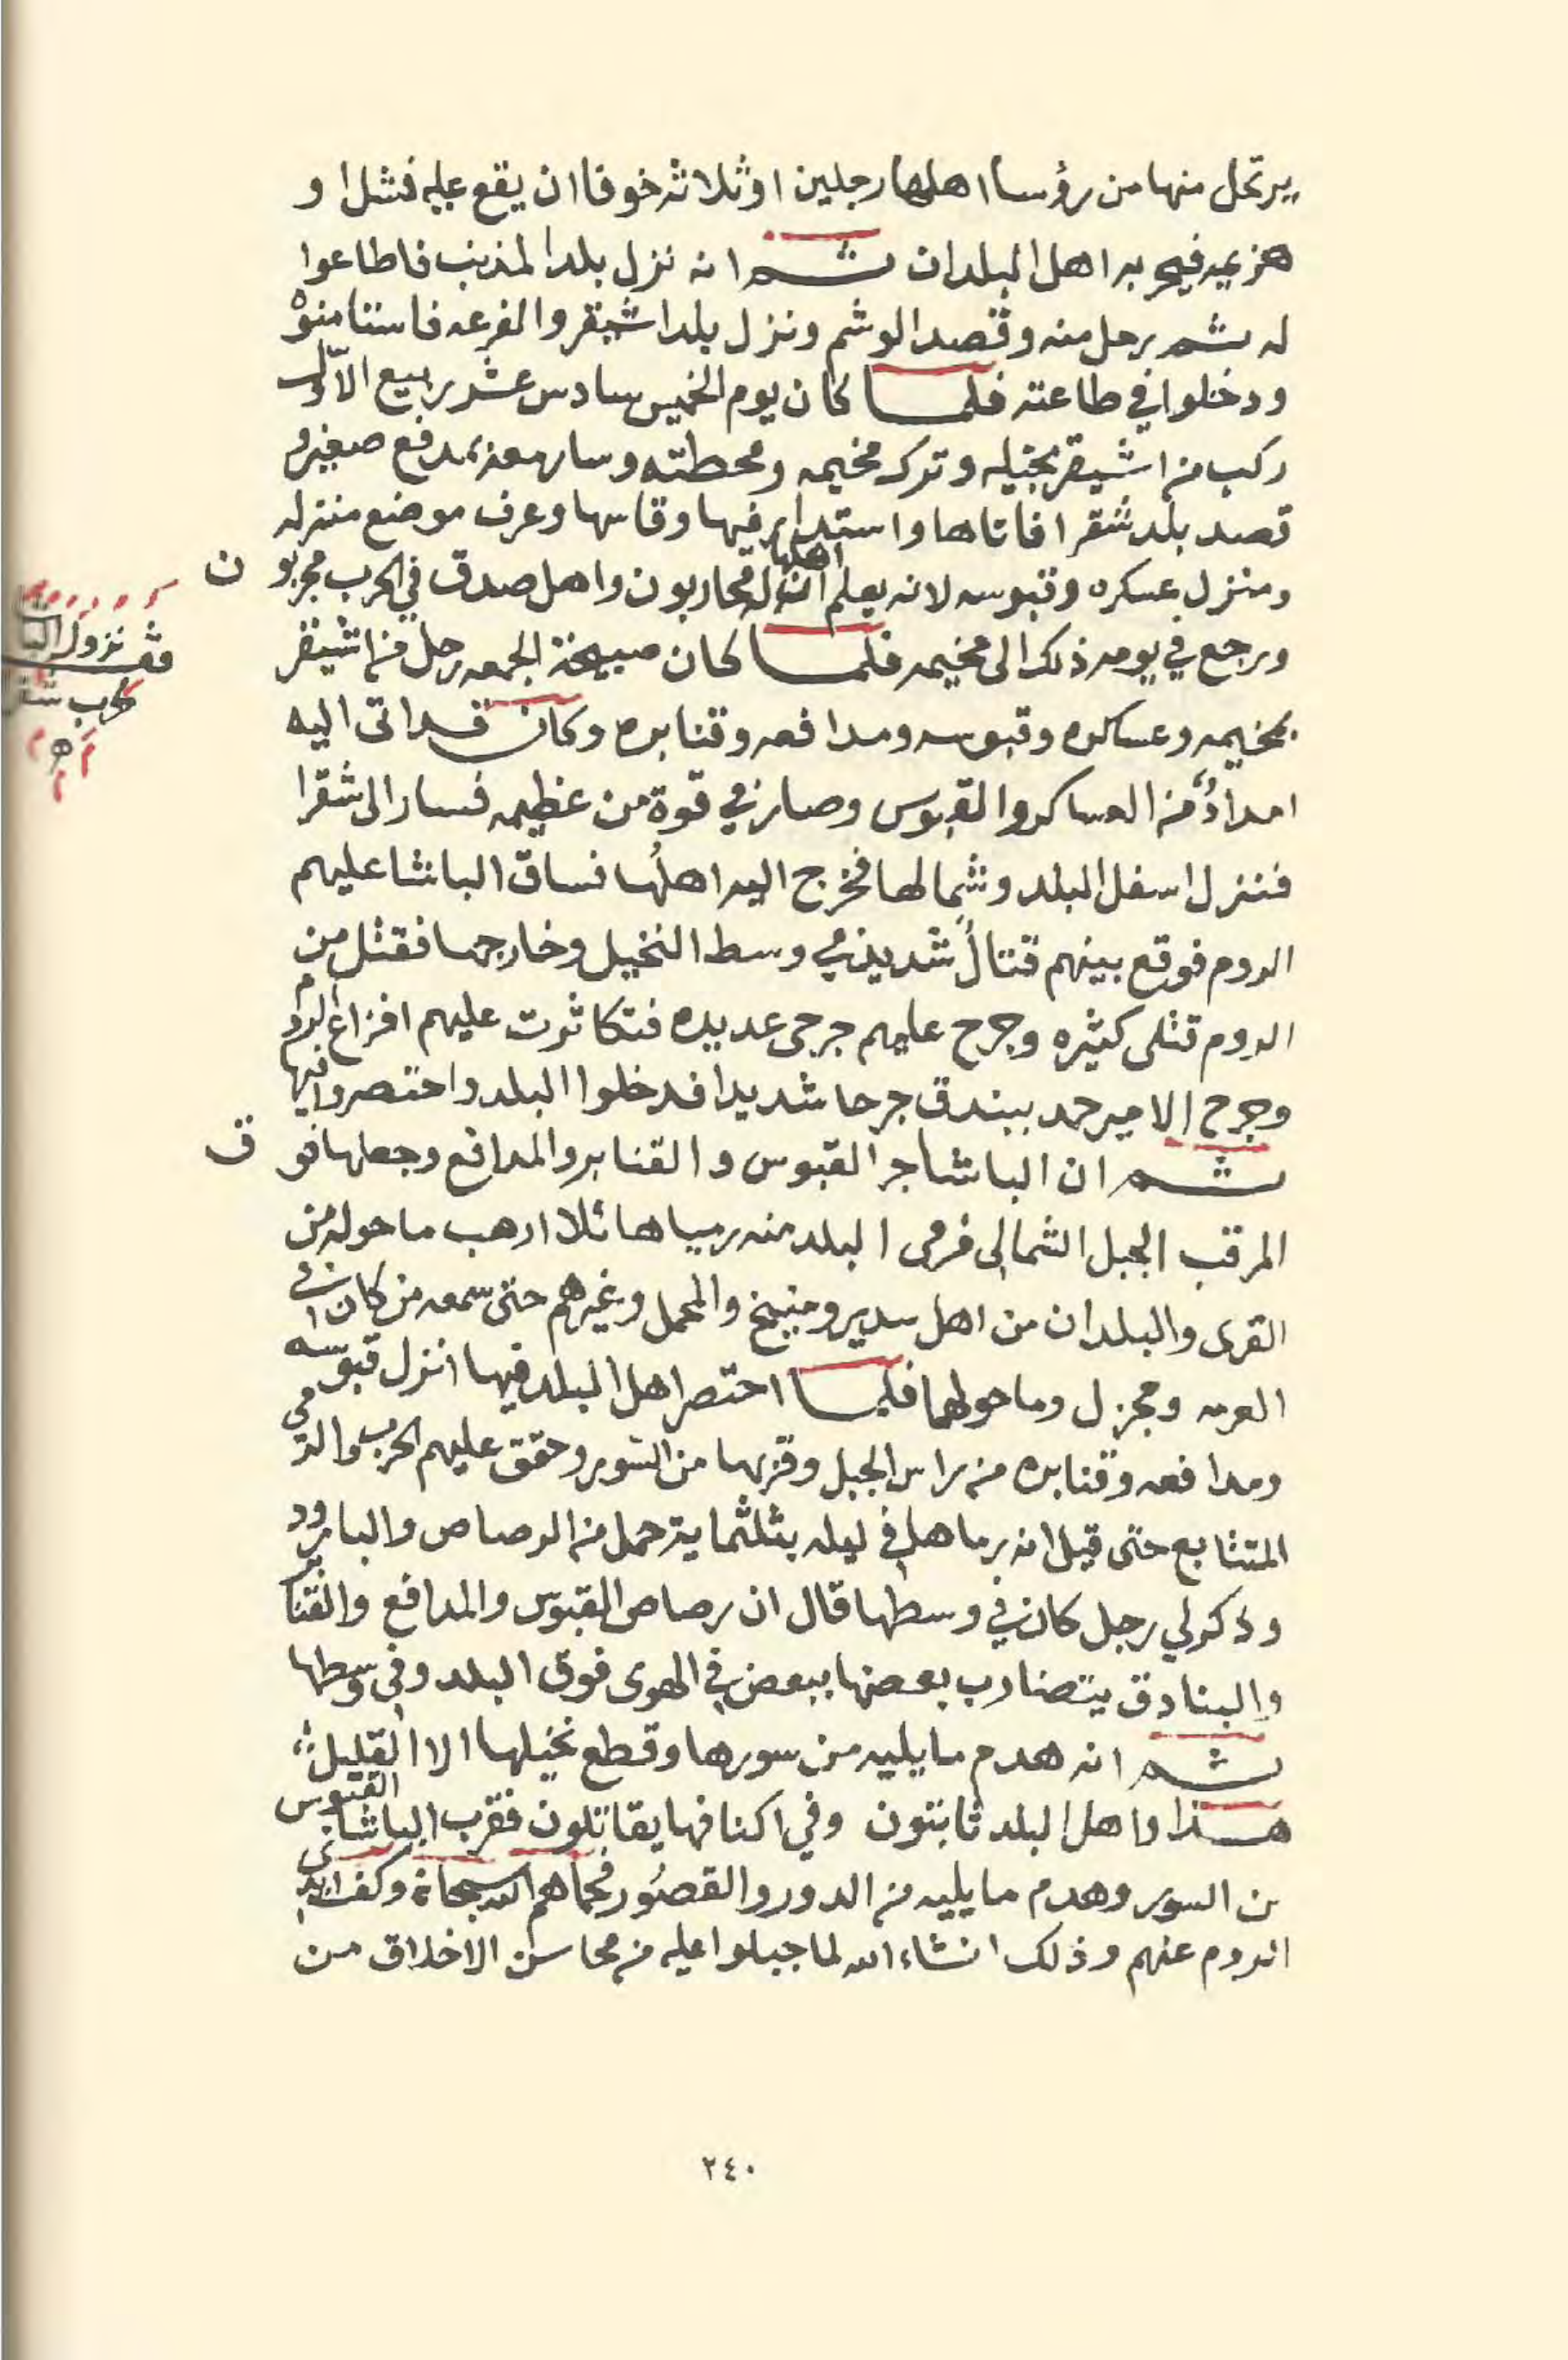 يرتحل منها من رؤسا اهلها رجلين او ثلاثه خوفا ان يقع عليه فشل او
هزيمه فيجير به اهل البلدان ثم انه نزل بلد المذنب فاطاعوا
له ثم رحل منه وقصد الوشم ونزل بلد اشيقر والفرعه فاستامنوه
ودخلوا في طاعته فلما كان يوم الخميس سادس عشر ربيع الاول
ركب من اشيقر بخيله وترك مخيمه ومحطته وسار معه بمدفع صغير و
قصد بلد شقرا فاتاها واستدار فيها وقاسها وعرف موضع منزله
ومنزل عسكره وقبوسه لانه يعلم ان اهلها له محاربون واهل صدق في الحرب مجربون
ورجع في يومه ذلك الى مخيمه فلما كان صبيحة الجمعه رحل من اشيقر
بمخيمه وعساكره وقبوسه ومدافعه وقنابره وكان قد اتى اليه
امدادٌ من العساكر والقبوس وصار في قوة من عظيمه فسار الى شقرا
فنزل اسفل البلد وشمالها فخرج اليه اهلُها فساق الباشا عليهم
الروم فوقع بينهم قتالٌ شديد في وسط النخيل وخارجها فقتل من
الروم قتلى كثيره وجرح عليهم جرحى عديده فتكاثرت عليهم افزاع الروم
وجرح الامير حمد ببندق جرحا شديدا فدخلوا البلد واحتصروا فيها
ثم ان الباشا جر القبوس والقنابر والمدافع وجعلها فوق
المرقب الجبل الشمالي فرمى البلد منه رميا هائلا ارهب ما حوله من
القرى والبلدان من اهل سدير ومنيخ والمحمل وغيرهم حتى سمعه من كان في
العرمه ومجزل وما حولهما فلما احتصر اهل البلد فيها انزل قبوسه
ومدافعه وقنابره من راس الجبل وقربها من السور وحقق عليهم الحرب والرمي
المتتابع حتى قيل انه رماها في ليله بثلثماية حمل من الرصاص والبارود
وذكر لي رجل كان في وسطها قال ان رصاص القبوس والمدافع والقنابر
والبنادق يتضارب بعضها ببعض في الهوى فوق البلد وفي وسطها
ثم انه هدم ما يليه من سورها وقطع نخيلها الا القليل
هذا واهل البلد ثابتون وفي اكنافها يقاتلون فقرب الباشا القبوس
من السور وهدم ما يليه من الدور والقصُور فحماهم الله سبحانه وكف ايدي
الروم عنهم وذلك انشاء الله لما جبلوا عليه من محاسن الاخلاق من
قف نزول
لحرب
٢٤٠